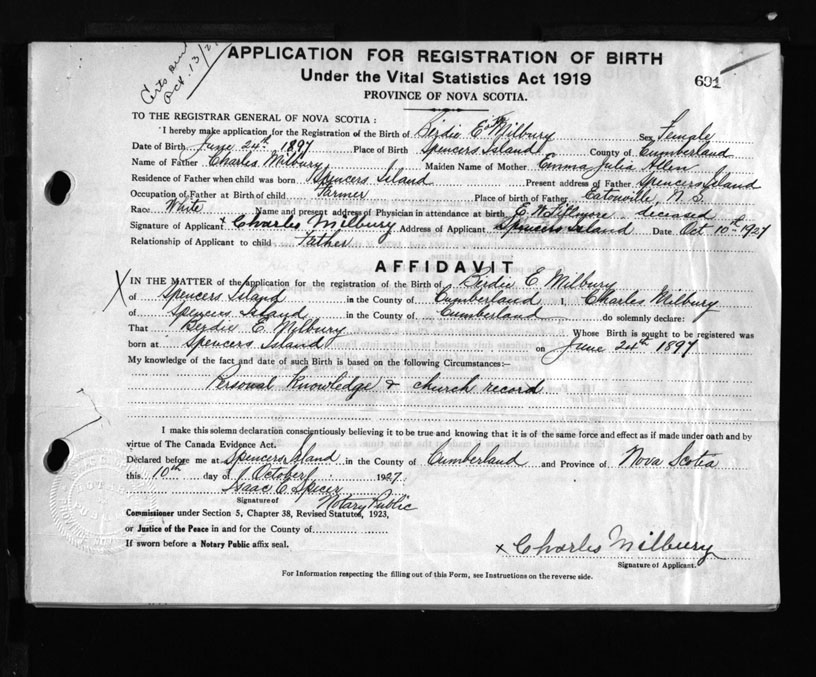 Certs send
Oct. 13/27
APPLICATION FOR REGISTRATION OF BIRTH
Under the Vital Statistics Act 1919
691
PROVINCE OF NOVA SCOTIA.
TO THE REGISTRAR GENERAL OF NOVA SCOTIA:
I hereby make application for the Registration of the Birth of Birdie E. Milbury Sex Female
Date of Birth June 24th 1897 Place of Birth Spencers Island County of Cumberland
Name of Father Charles Milbury Maiden Name of Mother Emma Julia Allen
Residence of Father when child was born Spencers Island Present address of Father Spencers Island
Occupation of Father at Birth of child Farmer Place of birth of Father Eatonville, N. S.
Race White Name and present address of Physician in attendance at birth E. W. Fillmore deceased
Signature of Applicant x Charles Milbury Address of Applicant Spencers Island Date Oct 10th 1927
Relationship of Applicant to child Father
AFFIDAVIT
X IN THE MATTER of the application for the registration of the Birth of Birdie E. Milbury
of Spencers Island in the County of Cumberland I, Charles Milbury
of Spencers Island in the County of Cumberland do solemnly declare:
That Birdie E. Milbury Whose Birth is sought to be registered was
born at Spencers Island on June 24th 1897
My knowledge of the fact and date of such Birth is based on the following Circumstances:—
Personal Knowledge & church record
I make this solemn declaration conscientiously believing it to be true and knowing that it is of the same force and effect as if made under oath and by
virtue of The Canada Evidence Act.
Declared before me at Spencers Island in the County of Cumberland and Province of Nova Scotia
this 10th day of October 1927.
Isaac C Spicer
Signature of Notary Public
Commissioner under Section 5, Chapter 38, Revised Statutes, 1923,
or Justice of the Peace in and for the County of
If sworn before a Notary Public affix seal.
x Charles Milbury
Signature of Applicant.
For Information respecting the filling out of this Form, see Instructions on the reverse side.